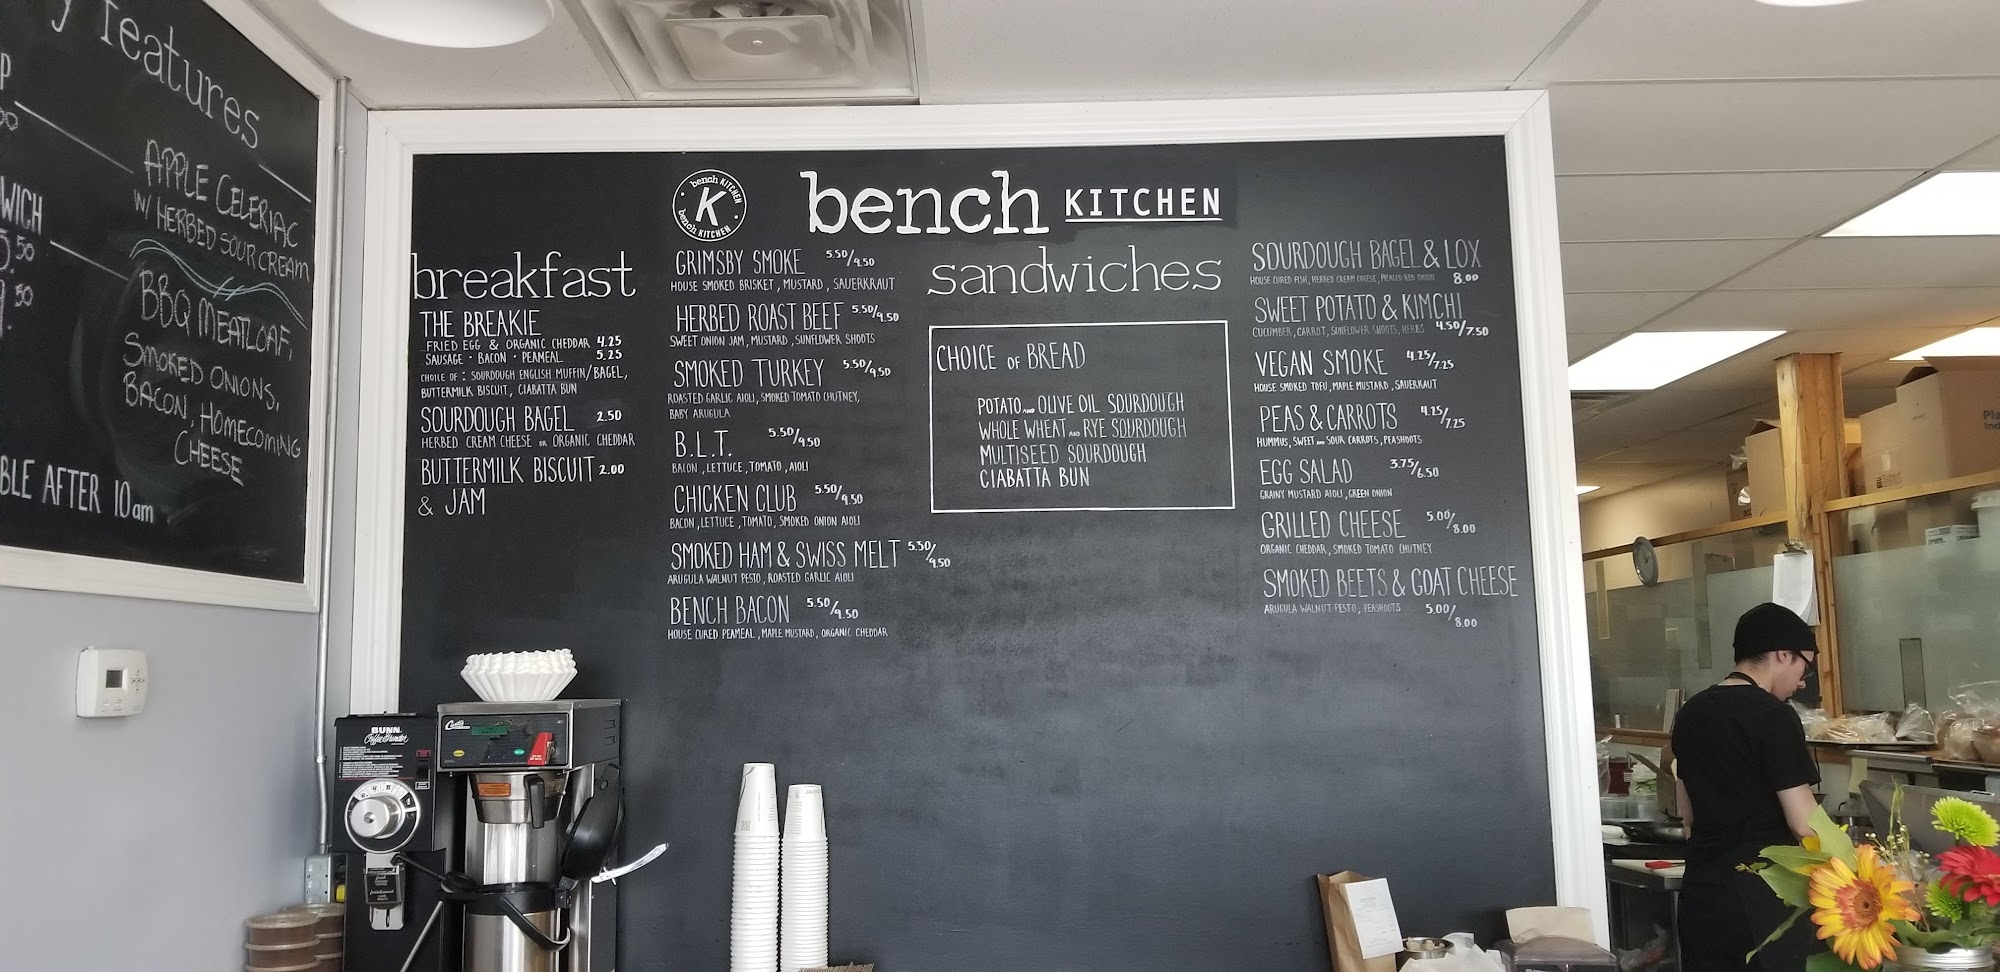 features
P
APPLE CELERIAC
W/ HERBED SOUR CREAM
WICH
.50
BBQ MEATLOAF,
SMOKED ONIONS,
BACON, HOMECOMING
CHEESE
.50
BLE AFTER 10am
bench KITCHEN
K
bench KITCHEN
bench KITCHEN
breakfast
THE BREAKIE
FRIED EGG & ORGANIC CHEDDAR 4.25
SAUSAGE · BACON · PEAMEAL 5.25
CHOICE OF : SOURDOUGH ENGLISH MUFFIN/BAGEL,
BUTTERMILK BISCUIT, CIABATTA BUN
SOURDOUGH BAGEL 2.50
HERBED CREAM CHEESE OR ORGANIC CHEDDAR
BUTTERMILK BISCUIT 2.00
& JAM
GRIMSBY SMOKE 5.50/9.50
HOUSE SMOKED BRISKET, MUSTARD, SAUERKRAUT
HERBED ROAST BEEF 5.50/9.50
SWEET ONION JAM, MUSTARD, SUNFLOWER SHOOTS
SMOKED TURKEY 5.50/9.50
ROASTED GARLIC AIOLI, SMOKED TOMATO CHUTNEY,
BABY ARUGULA
B.L.T. 5.50/9.50
BACON, LETTUCE, TOMATO, AIOLI
CHICKEN CLUB 5.50/9.50
BACON, LETTUCE, TOMATO, SMOKED ONION AIOLI
SMOKED HAM & SWISS MELT 5.50/9.50
ARUGULA WALNUT PESTO, ROASTED GARLIC AIOLI
BENCH BACON 5.50/9.50
HOUSE CURED PEAMEAL, MAPLE MUSTARD, ORGANIC CHEDDAR
sandwiches
CHOICE OF BREAD
POTATO AND OLIVE OIL SOURDOUGH
WHOLE WHEAT AND RYE SOURDOUGH
MULTISEED SOURDOUGH
CIABATTA BUN
SOURDOUGH BAGEL & LOX
HOUSE CURED FISH, HERBED CREAM CHEESE, PICKLED RED ONION 8.00
SWEET POTATO & KIMCHI
CUCUMBER, CARROT, SUNFLOWER SHOOTS, HERBS 4.50/7.50
VEGAN SMOKE 4.25/7.25
HOUSE SMOKED TOFU, MAPLE MUSTARD, SAUERKAUT
PEAS & CARROTS 4.25/7.25
HUMMUS, SWEET AND SOUR CARROTS, PEASHOOTS
EGG SALAD 3.75/6.50
GRAINY MUSTARD AIOLI, GREEN ONION
GRILLED CHEESE 5.00/8.00
ORGANIC CHEDDAR, SMOKED TOMATO CHUTNEY
SMOKED BEETS & GOAT CHEESE
ARUGULA WALNUT PESTO, PEASHOOTS 5.00/8.00
BUNN
Coffee Grinder
Curtis